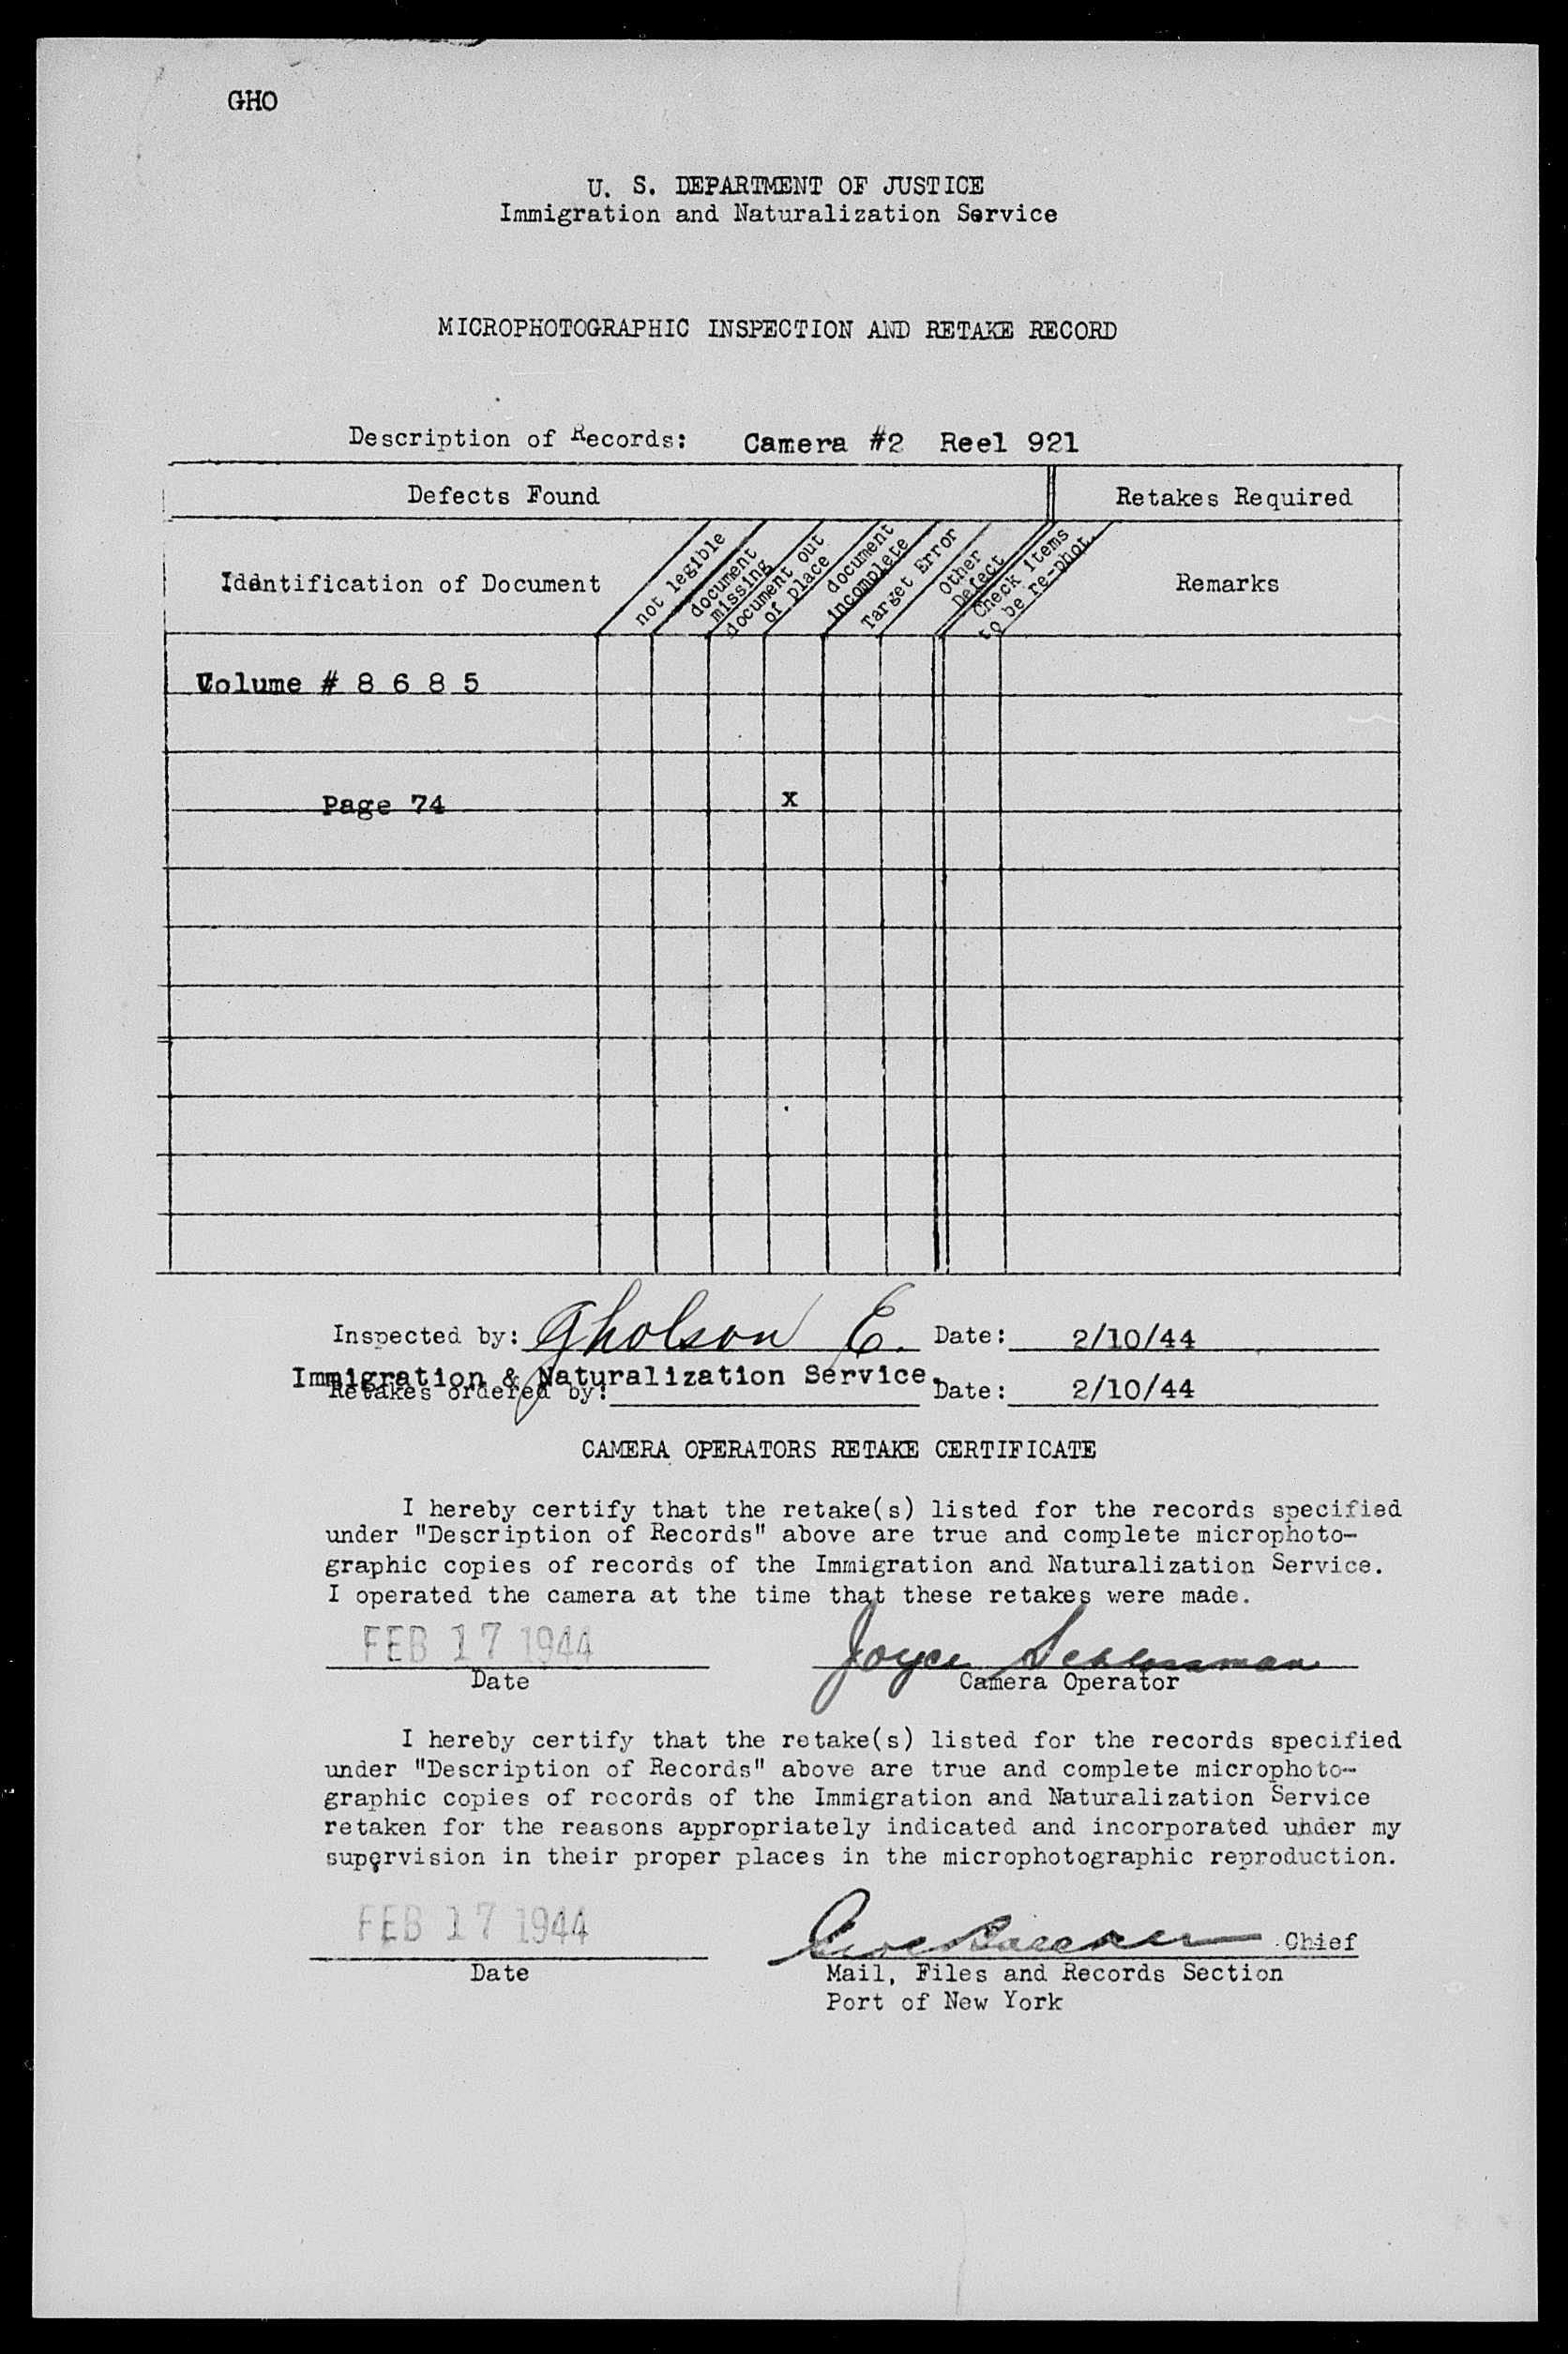 GHO
U. S. DEPARTMENT OF JUSTICE
Immigration and Naturalization Service
MICROPHOTOGRAPHIC INSPECTION AND RETAKE RECORD
Description of Records: Camera #2 Reel 921
Defects Found
Retakes Required
Identification of Document
not legible
document
missing
document out
of place
document
incomplete
Target Error
Other
Defect
Check items
to be re-phot.
Remarks
Volume # 8 6 8 5
Page 74 x
Inspected by: Gholson E. Date: 2/10/44
Immigration & Naturalization Service.
Retakes ordered by: Date: 2/10/44
CAMERA OPERATORS RETAKE CERTIFICATE
I hereby certify that the retake(s) listed for the records specified
under "Description of Records" above are true and complete microphoto-
graphic copies of records of the Immigration and Naturalization Service.
I operated the camera at the time that these retakes were made.
FEB 17 1944 Joyce
Date Camera Operator
I hereby certify that the retake(s) listed for the records specified
under "Description of Records" above are true and complete microphoto-
graphic copies of records of the Immigration and Naturalization Service
retaken for the reasons appropriately indicated and incorporated under my
supervision in their proper places in the microphotographic reproduction.
FEB 17 1944 Chief
Date Mail, Files and Records Section
Port of New York